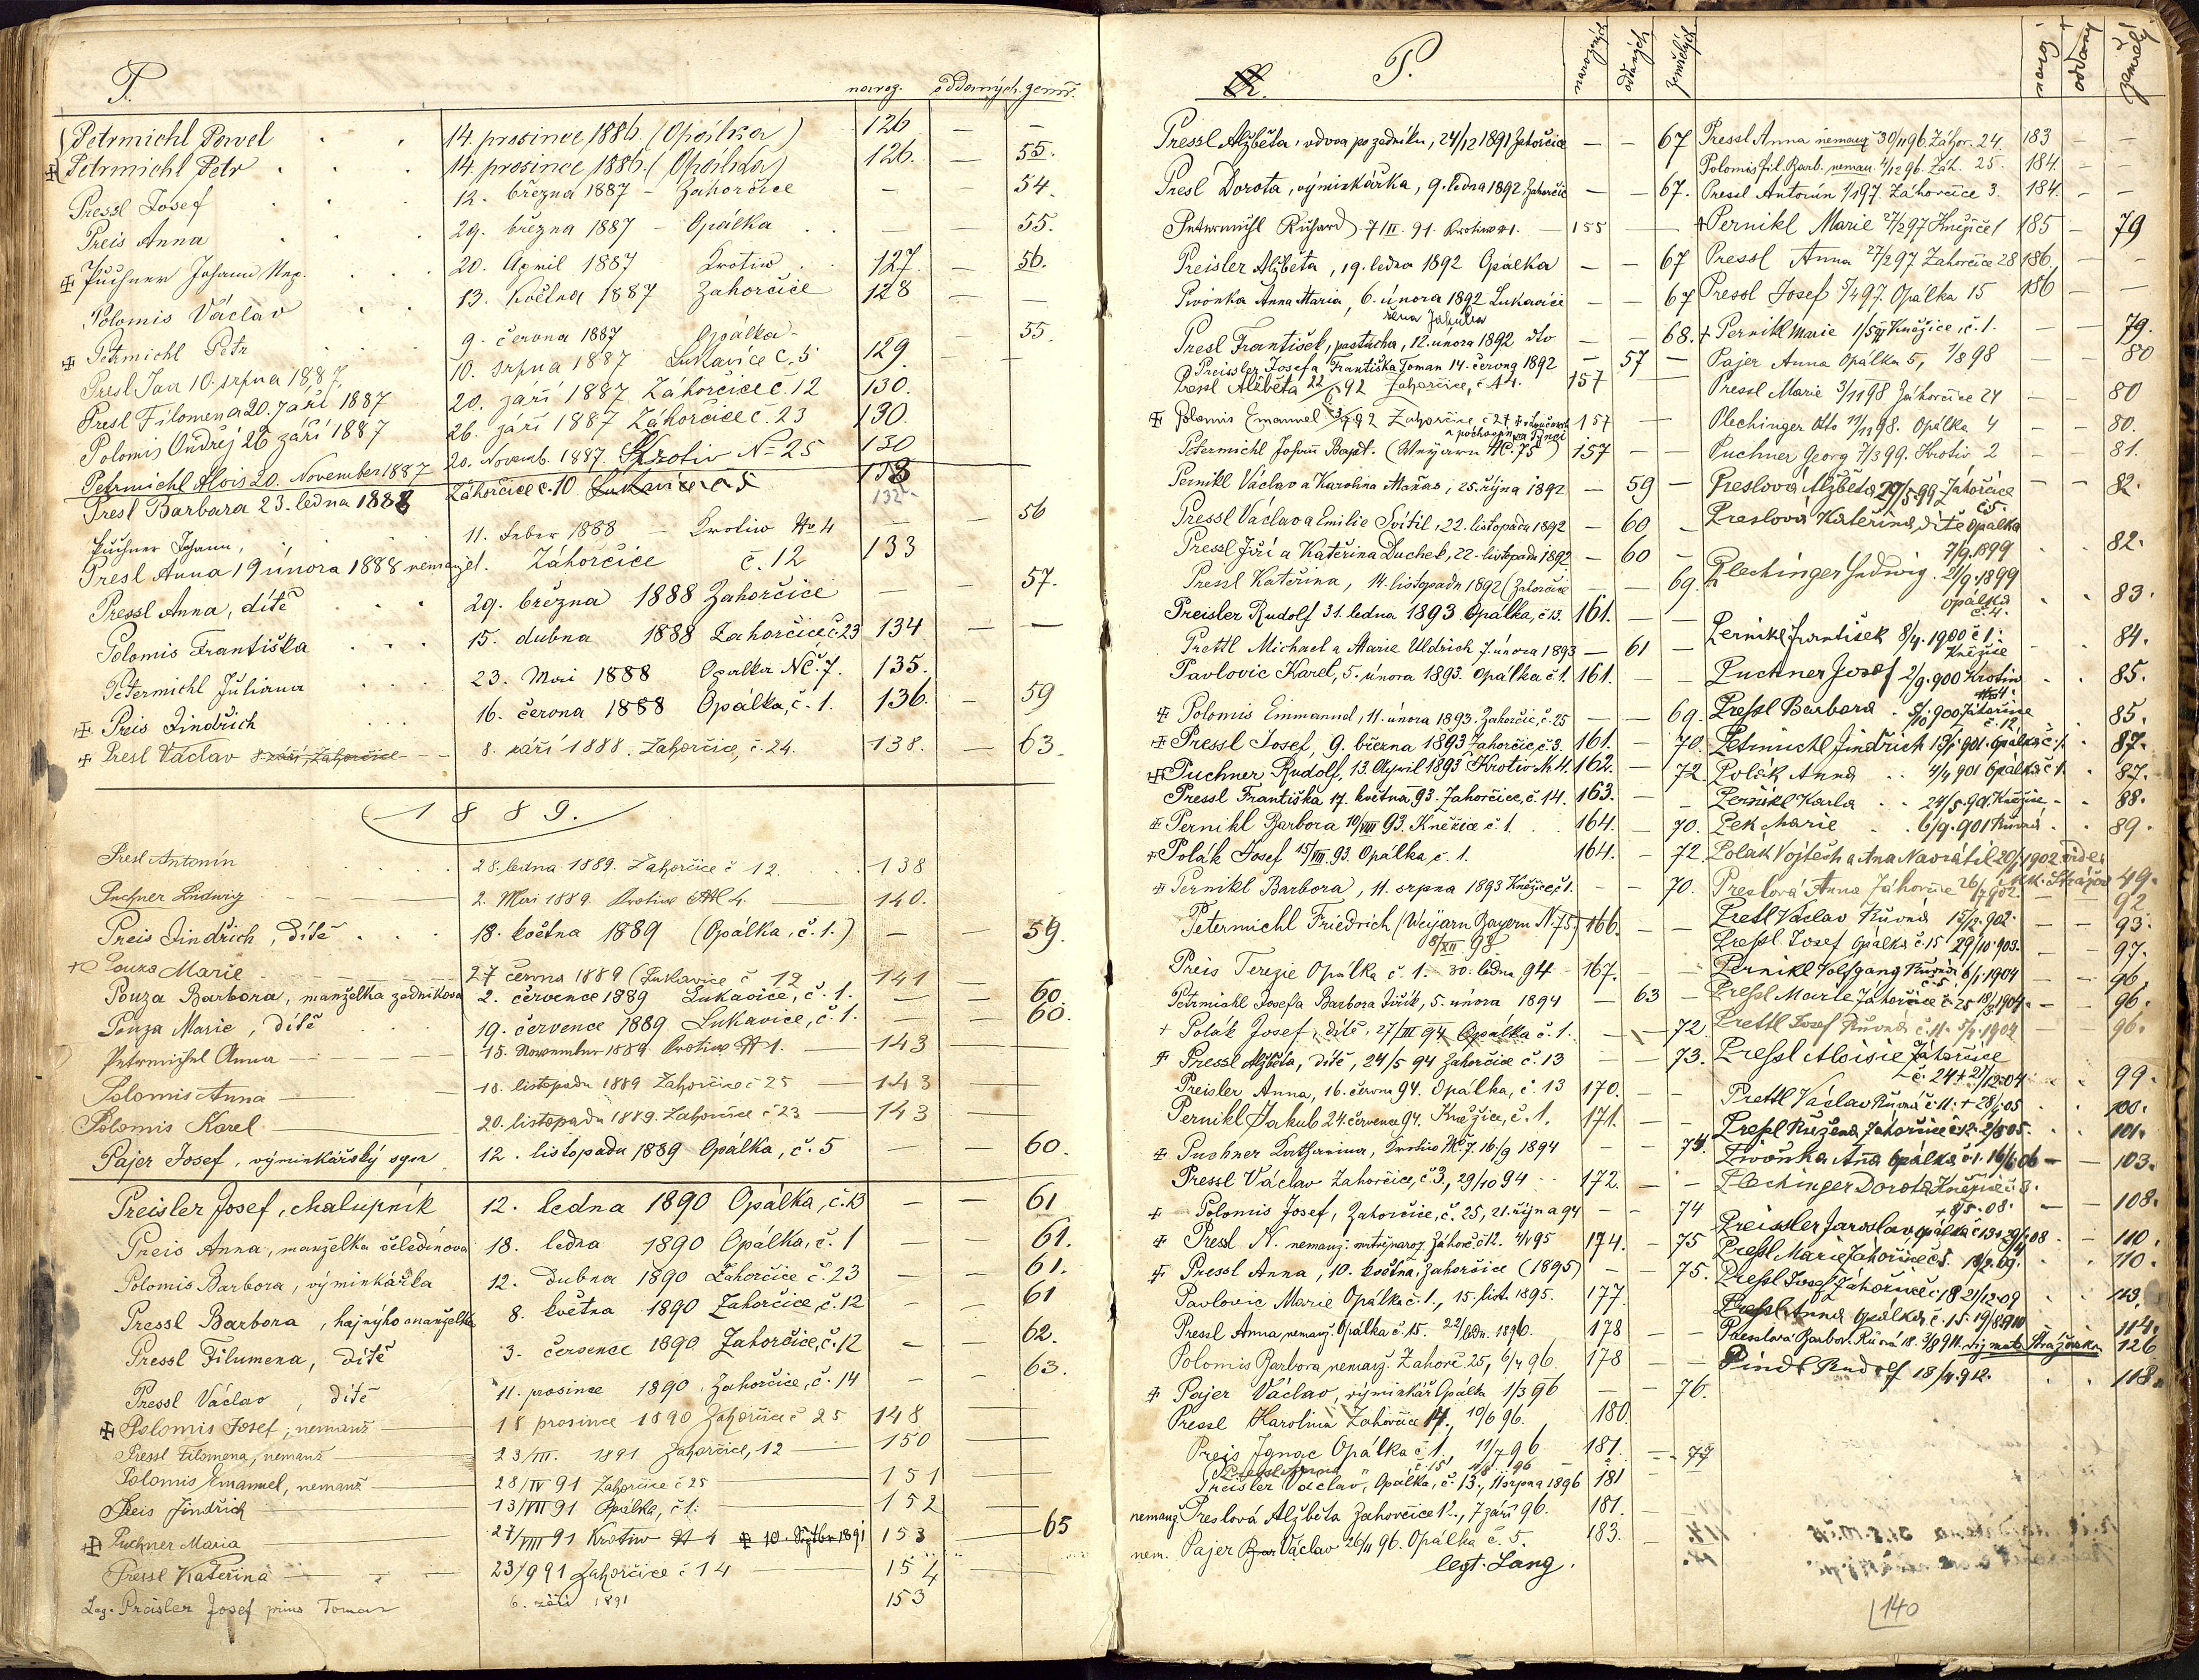 P. naroz. oddaných. zemř.
Petrmichl Pavel 14. prosince 1886. (Opálka) 126 — —
Petrmichl Petr 14. prosince 1886. (Opálka) 126. — 55.
Pressl Josef 12. března 1887 – Zahorčice — 54.
Preis Anna 29. března 1887 – Opálka — — 55.
Puchner Johann Nep. 20. April 1887 Krotiw 127. — 56.
Polomis Václav 13. Května 1887 Zahorčice 128 — —
Petrmichl Petr 9. června 1887 Opálka 55.
Presl Jan 10. srpna 1887. 10. srpna 1887 Lukavice č. 5 129. —
Presl Filomena 20. září 1887 20. září 1887 Záhorčice č. 12 130.
Polomis Ondřej 26 září 1887 26. září 1887 Záhorčice č. 23 130.
Petrmichl Alois 20. November 1887 20. Novemb. 1887. Krotiv N= 25 130
Presl Barbara 23. ledna 1888 Záhorčice č. 10 Lukavice č 5 138
132
Puchner Johann, 11. Feber 1888 — Krotiw No 4 — — 56
Presl Anna 19 února 1888 nemanžel. Záhorčice č. 12 133
Pressl Anna, dítě 29. března 1888 Zahorčice — — 57.
Polomis Františka 15. dubna 1888 Zahorčice č. 23 134 — —
Petermichl Juliana 23. Mai 1888 Opalka NČ. 7. 135.
Preis Jindřich 16. června 1888 Opálka, č. 1. 136. — 59
Presl Václav 8 září, Zahorčice 8. září 1888. Zahorčice, č. 24. 138. — 63.
1889.
Presl Antonín 28. ledna 1889. Zahorčice č 12. 138
Puchner Ludwig 2. Mai 1889. Krotiw 4. — 140.
Preis Jindřich, dítě 18. května 1889 (Opálka, č. 1.) — — 59.
Pouza Marie 27 června 1889 (Lukavice č 12 141
Pouza Barbora, manželka zedníkova 2. července 1889 Lukavice, č. 1. — — 60.
Pouza Marie, dítě 19. července 1889 Lukavice, č. 1. — — 60.
Petrmichl Anna 15. November 1889 Krotiw N 1. — 143
Polomis Anna 18. listopadu 1889 Zahorčice č 25 — 143
Polomis Karel 20. listopadu 1889. Zahorčice č 23 — 143
Pajer Josef, výminkářský syn 12. listopadu 1889 Opálka, č. 5 — — 60.
Preisler Josef, chalupník 12. ledna 1890 Opálka, č. 13 — — 61
Preis Anna, manželka čeledínova 18. ledna 1890 Opálka, č. 1 — — 61.
Polomis Barbora, výminkářka 12. Dubna 1890 Zahorčice č. 23 — — 61.
Pressl Barbora, hajného manželka 8. května 1890 Zahorčice, č. 12 — — 61
Pressl Filumena, dítě 3. července 1890 Zahorčice, č. 12 — — 62.
Pressl Václav, dítě 11. prosince 1890. Zahorčice, č. 14 — — 63.
Polomis Josef, nemanž 18 prosince 1890 Zahorčice č 25 148
Pressl Filomena, nemanž 23/III. 1891 Zahorčice, 12 — 150
Polomis Emanuel, nemanž 28/IV 91 Zahorčice č 25 151
Preis Jindřich 13/VII 91 Opálka, č 1. 152
Puchner Maria 27/VIII 91 Krotiw N 4 10. Septbr 1891 153 — 65
Pressl Kateřina 23/9 91 Zahorčice č 14 154
Leg. Preisler Josef prius Toman 6. září 1891 153
P. narozených oddaných zemřelých
Pressl Alžběta, vdova po zedníku, 24/12 1891 Zahorčice — — 67
Presl Dorota, výminkářka, 9. ledna 1892. Zahorčic — — 67.
Petermichl Richard 7/II. 91. Krotiw N 1. — 155
Preisler Alžběta, 19. ledna 1892 Opálka — — 67
Pivonka Anna Maria, 6. února 1892 Lukavici — — 67
žena Jakuba
Presl František, pastucha, 12. února 1892 dto — — 68.
Preissler Josef a Františka Toman 14. června 1892 — 57 —
Pressl Alžběta 22/6 92 Zahorčice, č 14. 157
Polomis Emanuel 92 Zahorčice č 27 157
Petermichl Johann Bapt. (Weyarn N. 75) 157 — —
Pernikl Václav a Karolina Maňas, 25. října 1892 — 59 —
Pressl Václav a Emilie Svítil, 22. listopadu 1892 — 60 —
Pressl Jiří a Kateřina Duchek, 22. listopadu 1892 — 60 —
Pressl Kateřina, 14. listopadu 1892 (Zahorčice — — 69.
Preisler Rudolf 31. ledna 1893 Opálka, č 13. 161. — —
Prettl Michael a Marie Uldrich 7. února 1893 — 61 —
Pavlovic Karel, 5. února 1893. Opálka č 1. 161. — —
Polomis Emmanuel, 11. února 1893. Zahorčic, č. 25 — — 69.
Pressl Josef, 9. března 1893 Zahorčic, č 3. 161. — 70.
Puchner Rudolf, 13. April 1893 Krotiv N. 4. 162. — 72.
Pressl Františka 17. května 93. Zahorčice, č. 14. 163. — —
Pernikl Barbora 10/VIII 93. Kněžice č 1. 164. — 70.
Polák Josef 15/VIII. 93. Opálka, č. 1. 164. — 72.
Pernikl Barbora, 11. srpna 1893 Kněžice č 1. — — 70.
Petermichl Friedrich (Weijarn Bayern N. 75) 166. — —
8/XII 93
Preis Terezie Opálka č. 1. 30. ledna 94 — 167. — —
Petrmichl Josefa Barbora Jiřík, 5. února 1894 — 63 —
Polák Josef, dítě, 27/III 94 Opálka č. 1. — — 72.
Pressl Alžběta, dítě, 24/5 94 Zahorčice č. 13 — — 73.
Preisler, Anna, 16. června 94. Opálka, č. 13 170. — —
Pernikl Jakub 24. července 94. Kněžice, č. 1. 171. — —
Puchner Katharina, Krotiw N. 7. 16/9 1894 — — 74.
Pressl Václav Zahorčice, č. 3., 29/10 94 172. — —
Polomis Josef, Zahorčice, č. 25, 21. října 94 — — 74
Pressl N. nemanž. mrtvě naroz. Záhorč. č 12. 4/V 95 174. — 75
Pressl Anna, 10. května, Zahorčice (1895) — — 75.
Pavlovic Marie Opálka č. 1., 15. list. 1895. 177.
Pressl Anna, nemanž. Opálka č. 15. 22/ledn. 1896. 178 — —
Polomis Barbora, nemanž. Zahorč. 25, 6/4 96. 178 —
Pajer Václav, výminkář Opálka 1/3 96 — — 76.
Pressl Karolina Zahorčice 14., 10/6 96. 180.
Preis Ignac Opálka č. 1. 11/7 96 181. — 77
Preisler Václav, Opálka, č. 13., 11 srpna 1896 181
nemanž Preslová Alžběta Zahorčice 12., 7 září 96. 181.
nem. Pajer Václav 26/11 96. Opálka č. 5. 183.
legt. Lang.
naroz. oddaný zemřelý
Pressl Anna nemanž 30/11 96. Záhor. 24. 183 — —
Polomis fil. Barb. neman. 4/12 96. Záh. 25. 184. — —
Pressl Antonín 1/1 97. Záhorčice 3. 184. — —
Pernikl Marie 27/2 97 Kněžice 1 185 — 79
Pressl Anna 27/2 97 Zahorčice 28 186 — —
Pressl Josef 5/4 97. Opálka 15 186 — —
Pernikl Marie 1/5 97 Kněžice, č. 1. — — 79.
Pajer Anna Opálka 5, 7/8 98 — — 80
Pressl Marie 3/11 98 Záhorčice 24 — — 80
Plechinger Otto 98. Opálka 4 — — 80.
Puchner Georg 7/3 99. Krotiv 2 — — 81.
Preslová Alžběta 29/5 99 Záhorčice — — 82.
č 5.
Preslová Kateřina, dítě Opálka
7/9. 1899 82.
Plechinger Hedwig. 21/9. 1899
Opálka 83.
č. 4.
Pernikl František 8/4. 1900 č 1. 84.
Kněžice
Puchner Josef 2/9. 900 Krotiv 85.
N 4.
Pressl Barbora 900 Záhorčice 85.
č. 12
Petrmichl Jindřich 13/1 901. Opálka č. 1. 87.
Polák Anna 4/4 901 Opálka č 1. 87.
Pernikl Karla 24/5. 901. Kněžice 88.
Pek Marie 6/9. 901 Růvná 89.
Polak Vojtěch a Ana Navrátil 20/1 1902 vide
49.
Preslová Anna Záhorčice 26/7 902. — 92
Pretl Václav Růvná 15/9. 902. — 93.
Pressl Josef Opálka č. 15 29/10. 903. — 97.
Pernikl Volfgang Růvná 6/1. 1904 — 96.
č 5.
Pressl Marie Záhorčice č. 25 18/3 1904. — 96.
Prettl Josef Růvná č. 11. 1904 96.
Pressl Aloisie Záhorčice
č. 24 + 21/12. 04 99.
Prettl Václav Růvná č. 11. + 28/1. 05 100.
Pressl Růžena Záhorčice č. 12. 2/5 05. 101.
Pivoňka Anna Opálka č. 1. 16/6. 06 — — 103.
Plechinger Dorota Kněžice č. 3.
+ 8/5. 08. — 108.
Preissler Jaroslav Opálka č 13 08 — 110.
Pressl Marie Záhorčice č 5. 09. 110.
Pressl Josef Záhorčice č. 18 21/12. 09 113.
Pressl Anna Opálka č. 15. 19/8 910 114.
Presslová Barbor. Růvná 18. 3/9 911. viz mat. Strážovská 126
Pindl Rudolf 18/4. 912. 118.
140